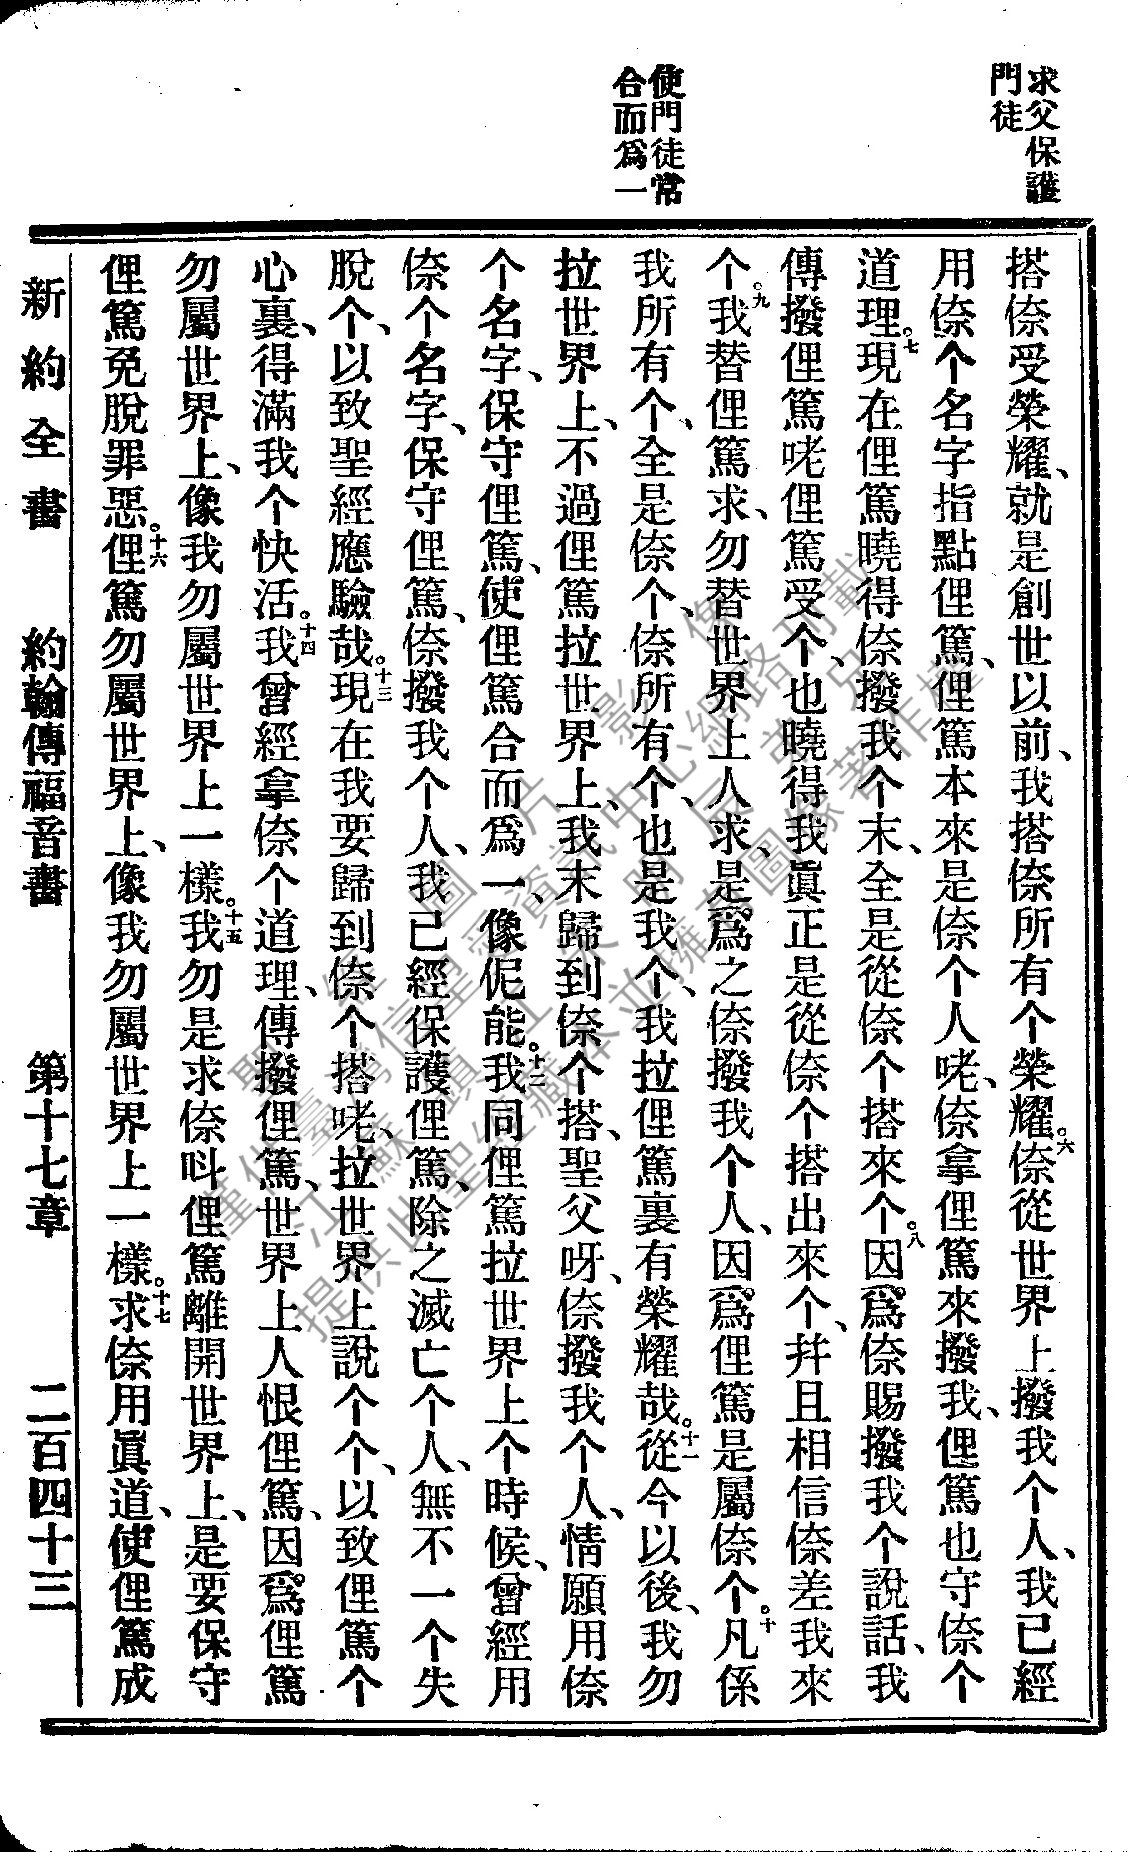 求父保護
門徒
使門徒常
合而爲一
搭倷受榮耀、就是創世以前、我搭倷所有个榮耀。六倷從世界上撥我个人、我已經
用倷个名字指點俚篤、俚篤本來是倷个人咾、倷拿俚篤來撥我、俚篤也守倷个
道理。七現在俚篤曉得倷撥我个末、全是從倷个搭來个。八因爲倷賜撥我个說話、我
傳撥俚篤咾俚篤受个、也曉得我眞正是從倷个搭出來个、幷且相信倷差我來
个。九我替俚篤求、勿替世界上人求、是爲之倷撥我个人、因爲俚篤是屬倷个。十凡係
我所有个、全是倷个、倷所有个、也是我个、我拉俚篤裏有榮耀哉。十一從今以後、我勿
拉世界上、不過俚篤拉世界上、我末歸到倷个搭、聖父呀、倷撥我个人、情願用倷
个名字、保守俚篤、使俚篤合而爲一、像伲能。十二我同俚篤拉世界上个時候、曾經用
倷个名字、保守俚篤、倷撥我个人、我已經保護俚篤、除之滅亡个人、無不一个失
脫个、以致聖經應驗哉。十三現在我要歸到倷个搭咾、拉世界上說个个、以致俚篤个
心裏、得滿我个快活。十四我曾經拿倷个道理、傳撥俚篤、世界上人恨俚篤、因爲俚篤
勿屬世界上、像我勿屬世界上一樣。十五我勿是求倷呌俚篤離開世界上、是要保守
俚篤免脫罪惡。十六俚篤勿屬世界上、像我勿屬世界上一樣。十七求倷用眞道、使俚篤成
新約全書　約翰傳福音書　第十七章　二百四十三